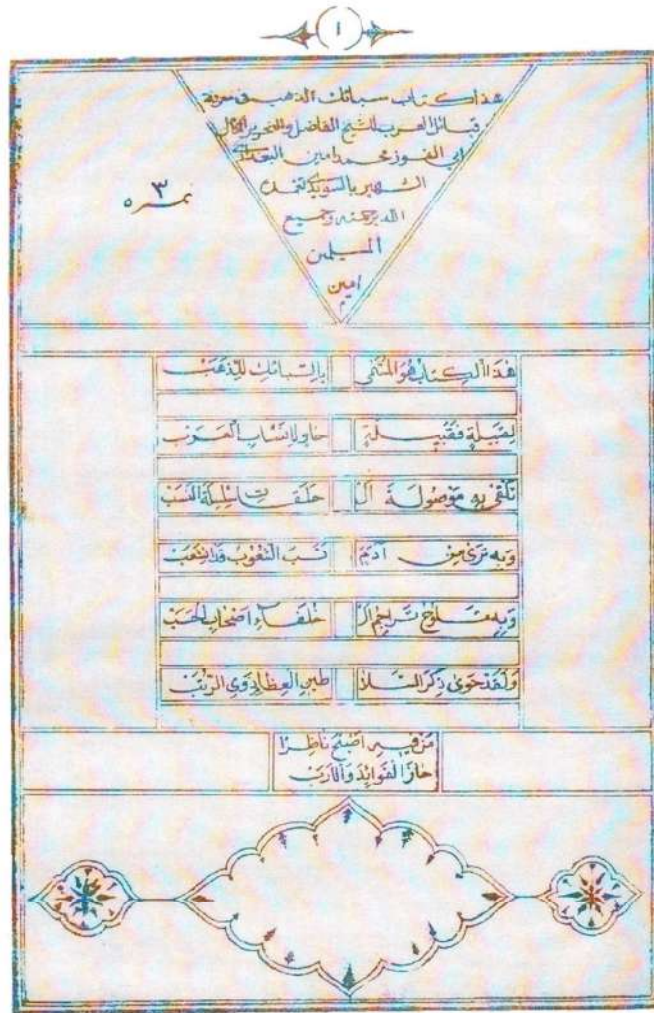 ١
هذا كتاب سبائك الذهب في معرفة
قبائل العرب للشيخ الفاضل والنحرير الكامل
ابي الفوز محمد امين البغدادي
الشهير بالسويدي تغمده
الله برحمته وجميع
المسلمين
امين
نمره ٣
هَذَا الْكِتَابُ هُوَ الْمُسَمَّى بِالسَّبَائِكِ لِلذَّهَبْ
لِقَبِيلَةٍ فَقَبِيلَةٍ حَاوٍ لِأَنْسَابِ الْعَرَبْ
تَلْقَى بِهِ مَوْصُولَةَ الْ حَلَقَاتِ سِلْسِلَةَ النَّسَبْ
وَبِهِ تَرَى مِنْ آدَمَ نَسَبَ الشُّعُوبِ وَمَا انْشَعَبْ
وَبِهِ تَلُوحُ تَرَاجِمُ الْ خُلَفَاءِ أَصْحَابِ الْحَسَبْ
وَلَقَدْ حَوَى ذِكْرَ السَّلَا طِينِ الْعِظَامِ ذَوِي الرُّتَبْ
مَنْ فِيهِ أَصْبَحَ نَاظِرًا
حَازَ الْفَوَائِدَ وَالْأَرَبْ